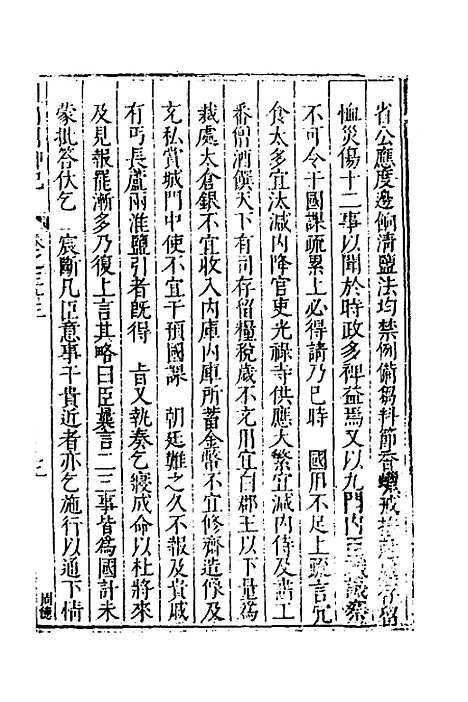 省公應度邊餉清鹽法均禁例備芻料節香蠟戒
恤災傷十二事以聞於時政多裨益焉又以九門内
不可令干國課疏累上必得請乃已時 國用不足上疏言冗
食太多宜汰減内降官吏光祿寺供應太繁宜減内侍及畫工
番僧酒饌天下有司存留糧稅歲不充用宜自郡王以下量為
裁處太倉銀不宜收入内庫内庫所蓄金幣不宜修齋造像及
充私賞城門中使不宜干預國課 朝廷難之久不報及貴戚
有丐長蘆兩淮鹽引者既得 旨又執奏乞寢成命以杜將來
及見報罷漸多乃復上言其略曰臣曩言二三事皆為國計未
蒙批答伏乞 宸斷凡臣意事干貴近者亦乞施行以通下情